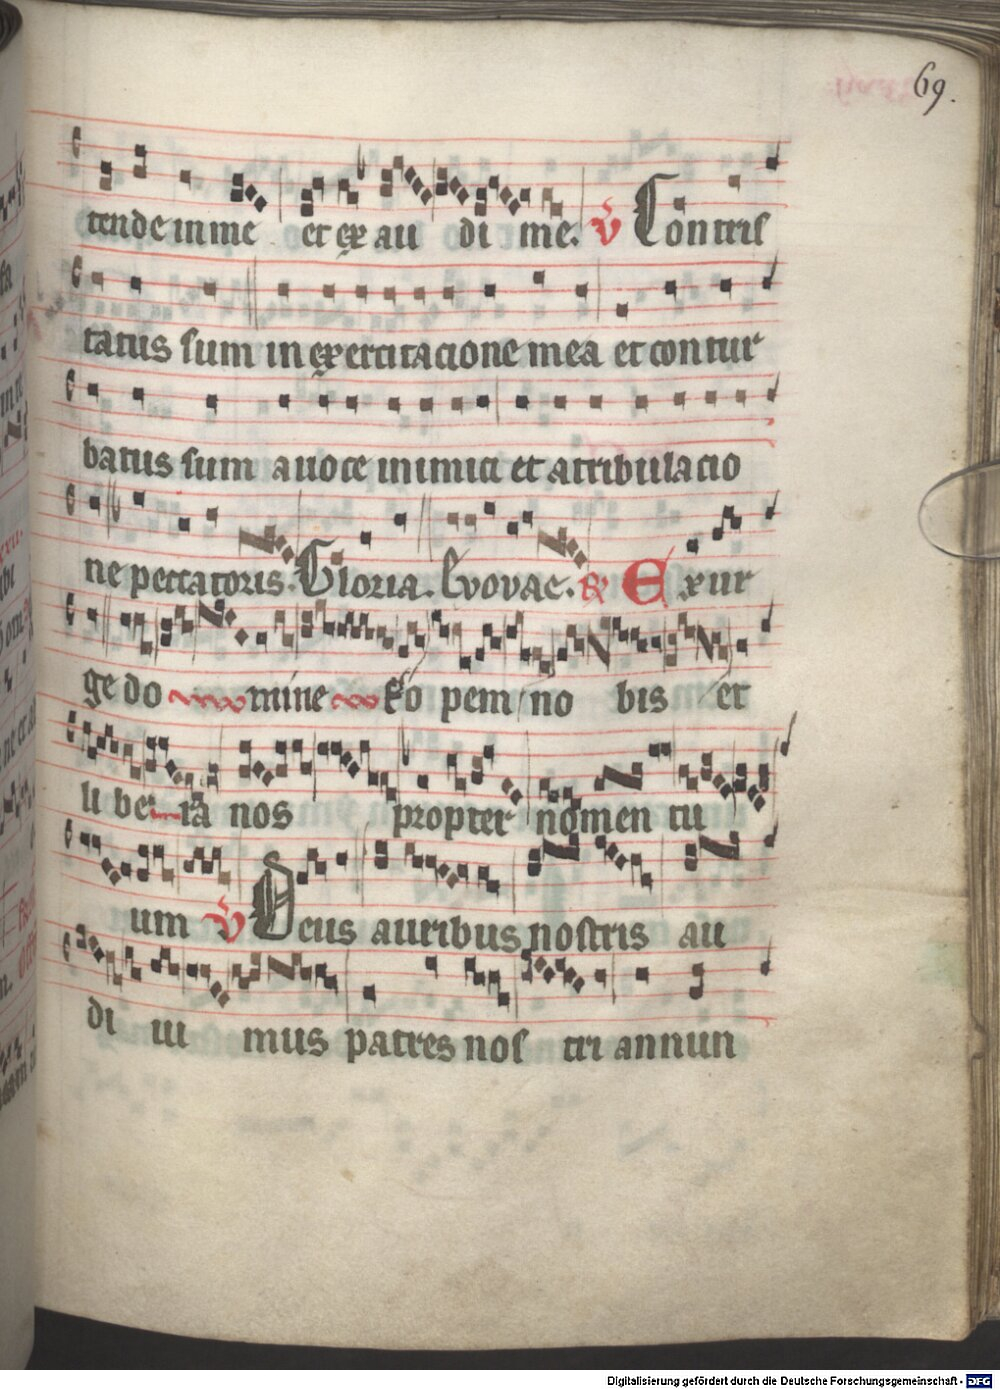 69.
tende in me et ex au di me. V Contris
tatus sum in exercitacione mea et contur
batus sum a voce inimici et a tribulacio
ne peccatoris. Gloria. Evovae. R Exur
ge do mine fo pem no bis et
li be ra nos propter nomen tu
um V Deus auribus nostris au
di ui mus patres nos tri annun
Digitalisierung gefördert durch die Deutsche Forschungsgemeinschaft - DFG